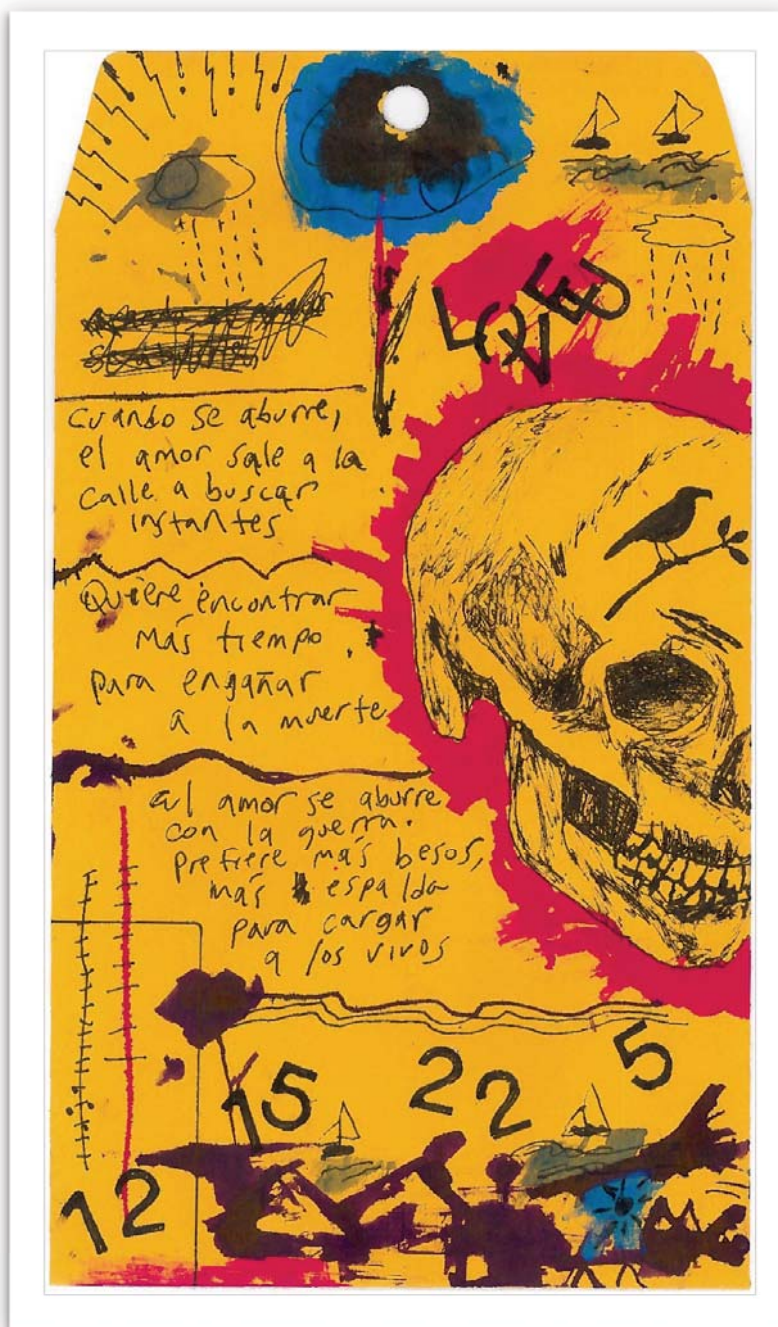 LOVE
Cuando se aburre,
el amor sale a la
calle a buscar
instantes
Quiere encontrar
más tiempo
para engañar
a la muerte
al amor se aburre
con la guerra.
prefiere más besos,
más espalda
para cargar
a los vivos
15 22 5
12